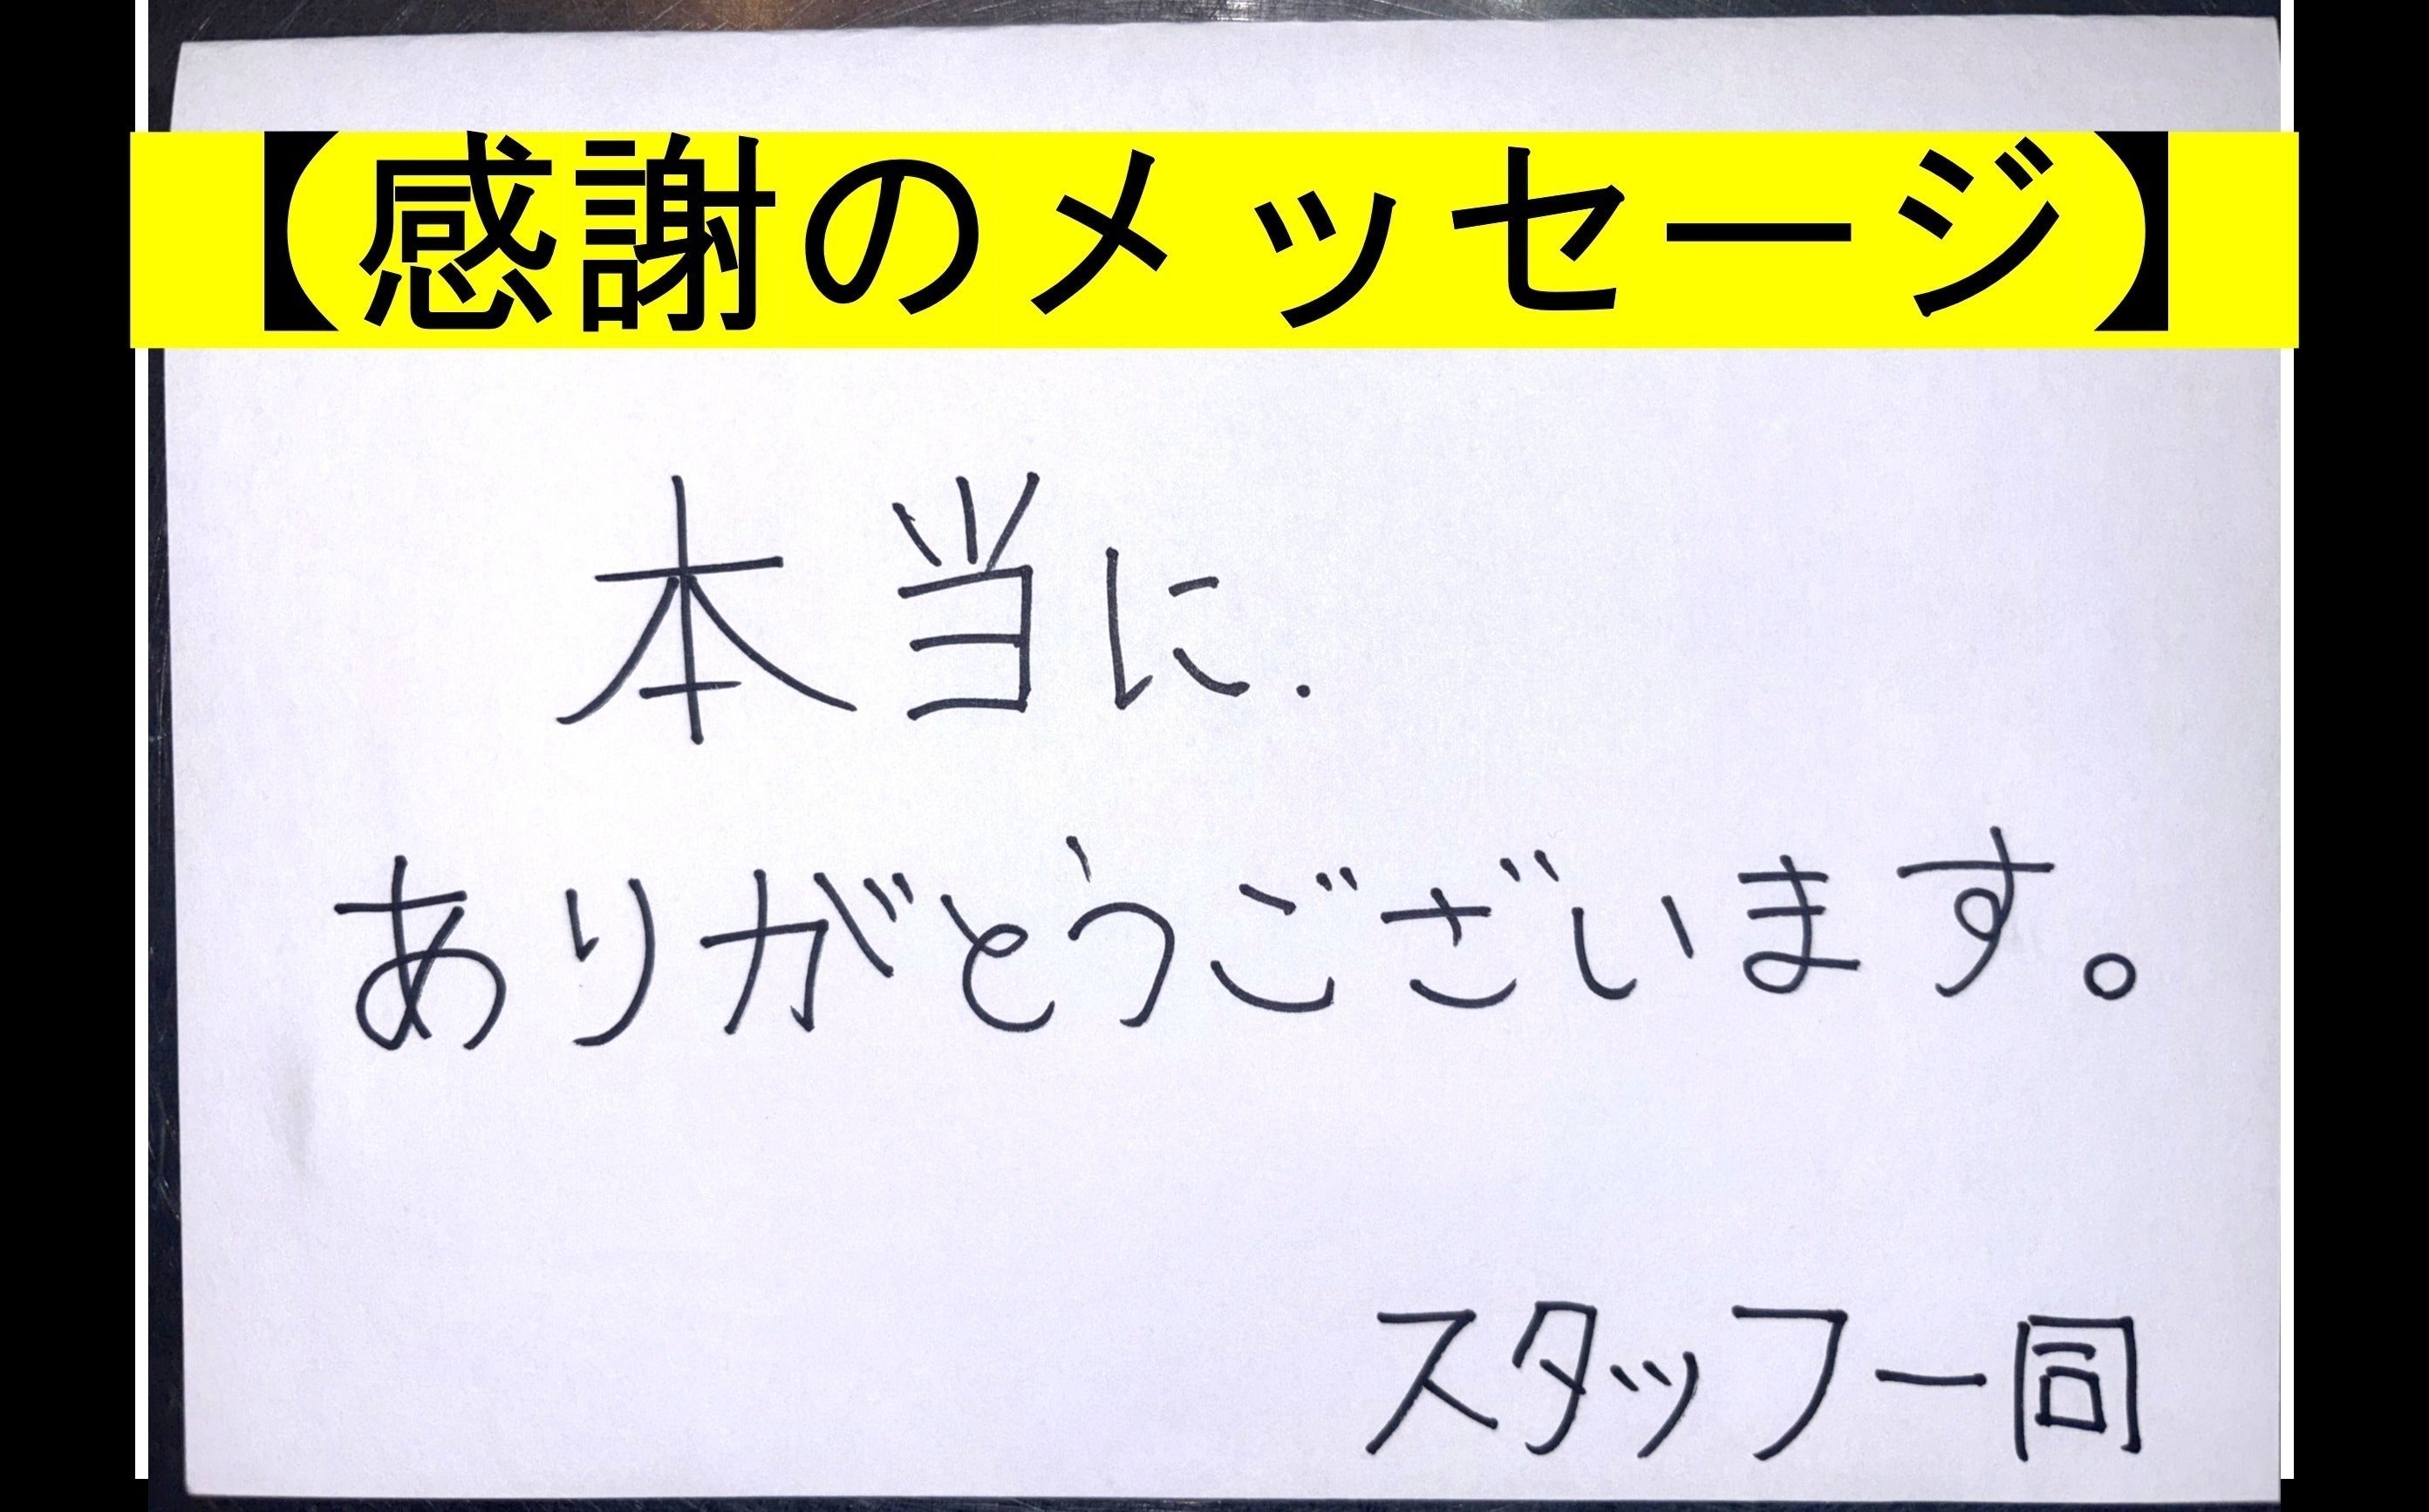 【感謝のメッセージ】
本当に.
ありがとうございます。
スタッフ一同